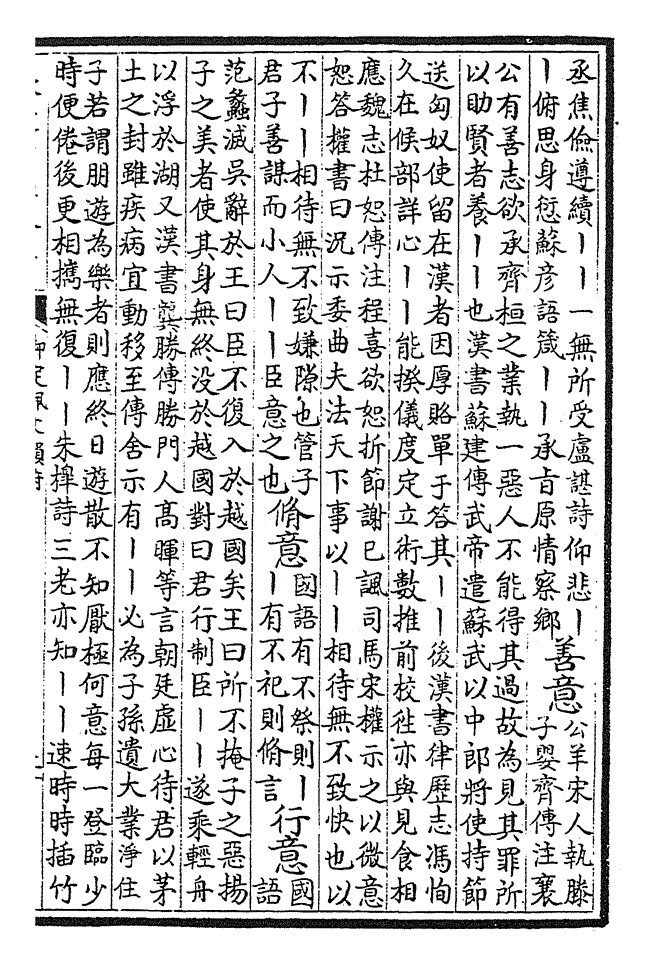 丞焦儉遵續丨丨一無所受盧諶詩仰悲丨
丨俯思身愆蘇彦語箴丨丨承旨原情察鄉
善意
公羊宋人執滕
子嬰齊傳注襄
公有善志欲承齊桓之業執一惡人不能得其過故為見其罪所
以助賢者養丨丨也漢書蘇建傳武帝遣蘇武以中郎將使持節
送匈奴使留在漢者因厚賂單于答其丨丨後漢書律歷志馮恂
久在候部詳心丨丨能揆儀度定立術數推前校往亦與見食相
應魏志杜恕傳注程喜欲恕折節謝已諷司馬宋權示之以微意
恕答權書曰况示委曲夫法天下事以丨丨相待無不致快也以
不丨丨相待無不致嫌隙也管子
君子善謀而小人丨丨臣意之也
脩意
國語有不祭則丨
丨有不祀則脩言
行意
國
語
范蠡滅吳辭於王曰臣不復入於越國矣王曰所不掩子之惡揚
子之美者使其身無終没於越國對曰君行制臣丨丨遂乘輕舟
以浮於湖又漢書龔勝傳勝門人高暉等言朝廷虛心待君以茅
土之封雖疾病宜動移至傳舍示有丨丨必為子孫遺大業淨住
子若謂朋遊為樂者則應終日遊散不知厭極何意每一登臨少
時便倦後更相攜無復丨丨朱樟詩三老亦知丨丨速時時插竹